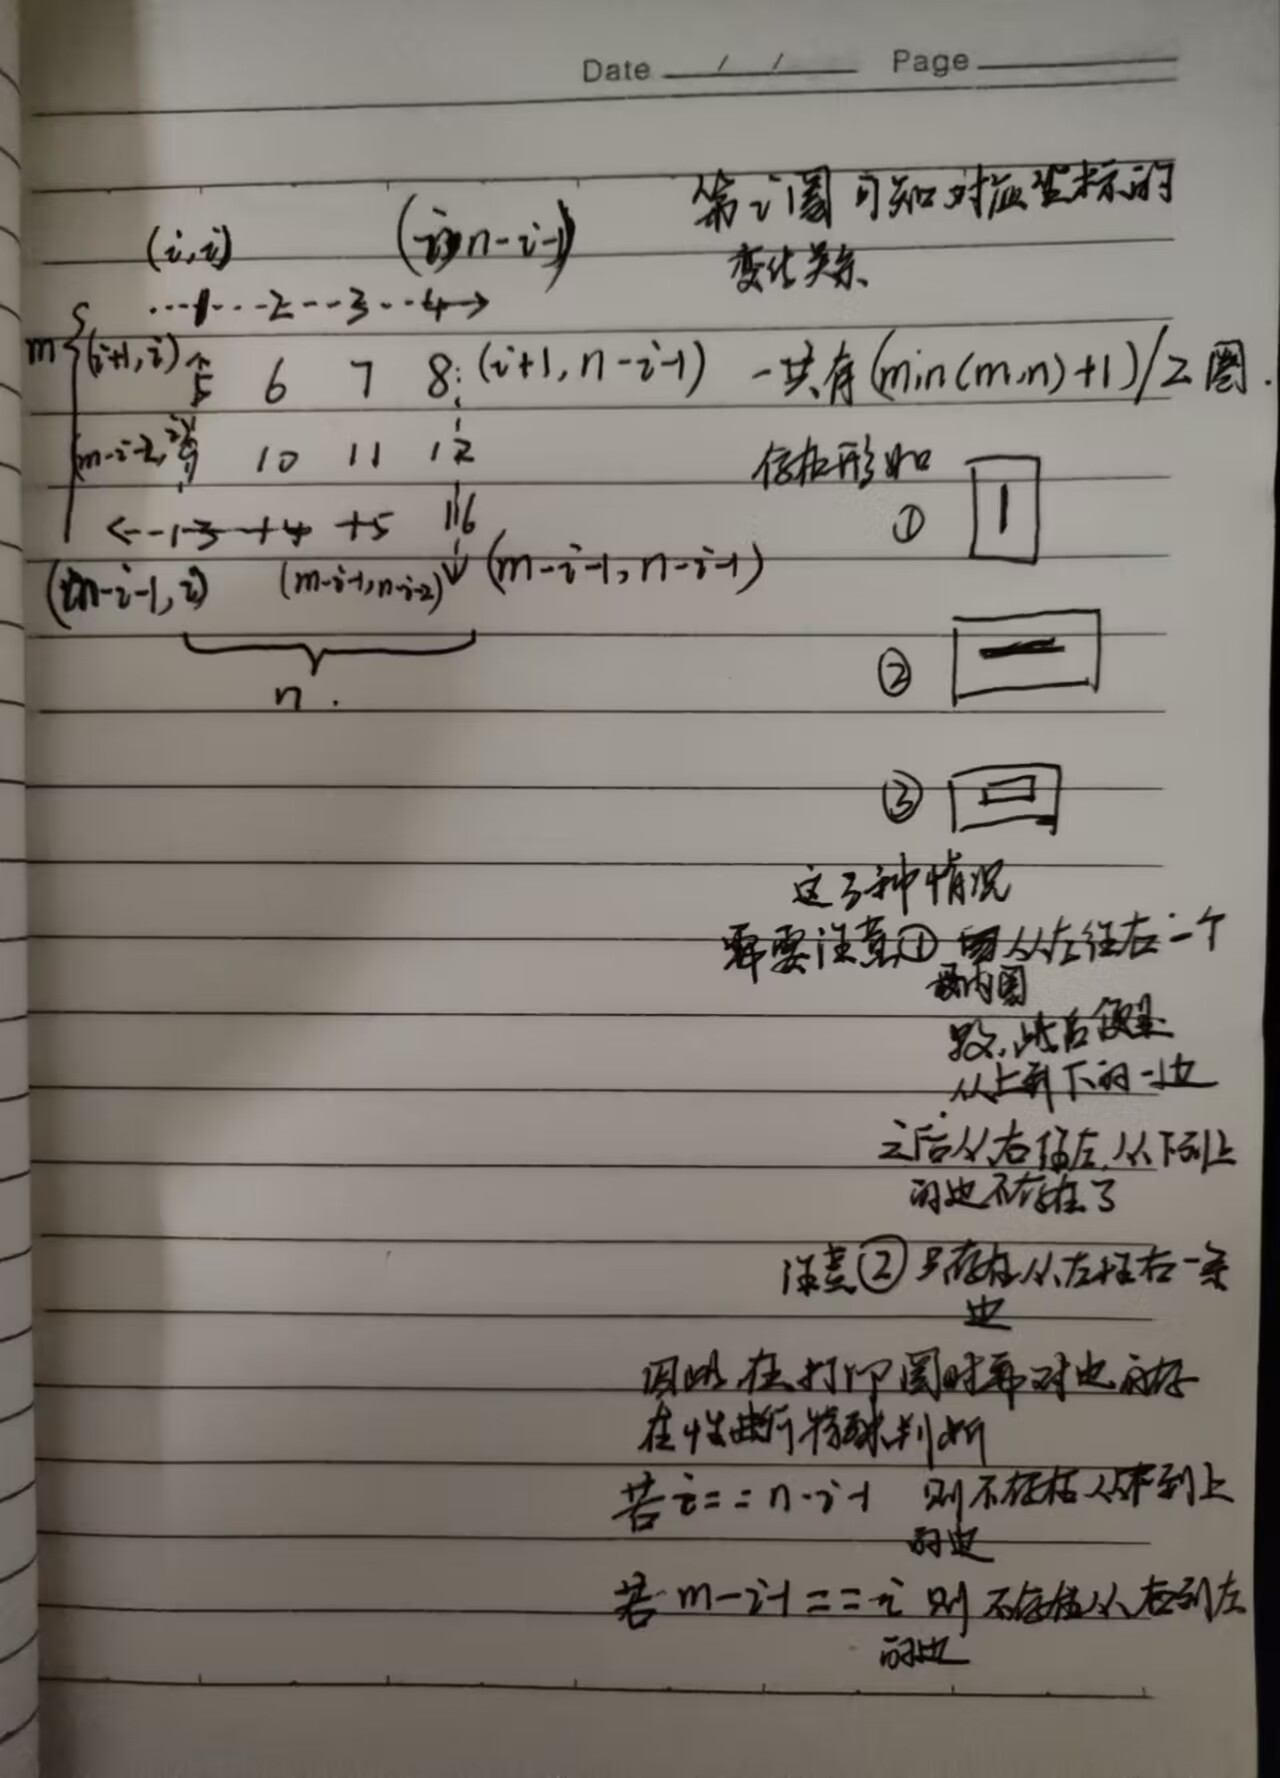 Date / / Page
第i圈可知对应坐标的
变化关系
(i,i) (i, n-i-1)
1 2 3 4
m (i+1,i) 5 6 7 8 (i+1, n-i-1) 一共有(min(m,n)+1)/2圈.
(m-i-2, i) 9 10 11 12
存在形如
①
13 14 15 16
(m-i-1, i) (m-i-1, n-i-2) (m-i-1, n-i-1)
②
n.
③
这3种情况
需要注意① 从左往右一个
最内圈
数,此后便是
从上到下的一边
之后从右往左,从下到上
的边不存在了
注意② 只存在从左往右一条
边
因此在打印圈时需对边的存
在性进行特殊判断
若 i==n-i-1 则不存在从下到上
的边
若 m-i-1==i 则 不存在从右到左
的边